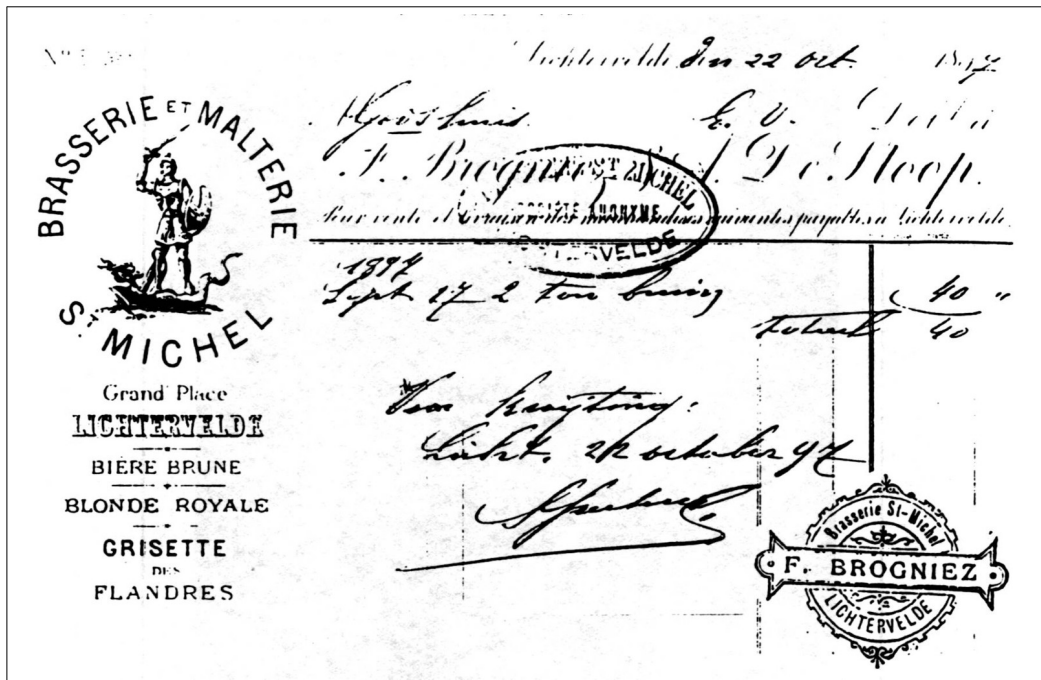 BRASSERIE ET MALTERIE
St MICHEL
Grand Place
LICHTERVELDE
BIÈRE BRUNE
BLONDE ROYALE
GRISETTE
DES
FLANDRES
Lichtervelde den 22 oct. 1897
E. V. Doit à
F. Brogniez J. De Sloop.
Pour vente et livraison des marchandises suivantes payables à Lichtervelde
ST MICHEL
SOCIÉTÉ ANONYME
LICHTERVELDE
1897
Sept 17 2 ton bruin 40 "
Totaal 40
Voor kwijting:
Licht. 22 october 97
Brasserie St-Michel
F. BROGNIEZ
LICHTERVELDE